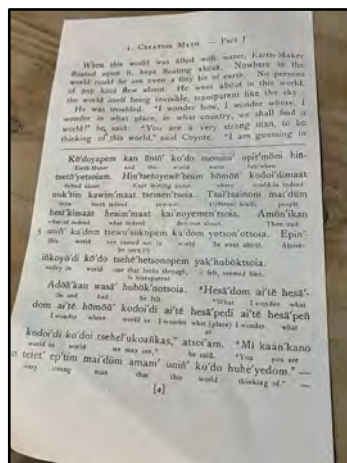 1. CREATION MYTH — Part I
When this world was filled with water, Earth-Maker
floated upon it, kept floating about. Nowhere in the
world could he see even a tiny bit of earth. No persons
of any kind flew about. He went about in this world,
the world itself being invisible, transparent like the sky.
He was troubled. "I wonder how, I wonder where, I
wonder in what place, in what country, we shall find a
world!" he said. "You are a very strong man, to be
thinking of this world," said Coyote. "I am guessing in
Kō'doyapem kan ūniñ' ko'do momim' opit'mōni hin-
Earth-Maker and this world water full-when
tsetō'yetsoiam. Hin'tsetoyewē'bisim hōmōn' kodoi'dimaat
floated about. Kept floating about where world-in-indeed
kawim'maat tsemen'tsoia. Tsai'tsainom mai'düm
earth indeed saw-not. Different kinds people
hesī'kimaat hesim'maat kai'noyemen'tsoia. Amōn'ikan
what-of indeed what indeed flew-not-about. Then and
5 uniñ' ka'dom
this world he went about. Above-
iñkoyō'di kō'do tsehē'hetsonopem yak'hubōktsoia.
valley in world one that looks through, it felt, seemed like.
is transparent
Adoñ'kan wasā' hubōk'notsoia. "Hesā'dom ai'tē hesā'-
So and bad. he felt. "What I wonder what
dom ai'tē hōmōñ' kodoi'di ai'tē hesā'pedi ai'tē hesā'peñ
I wonder where world in I wonder what (place) I wonder what
of
kodoi'di kō'doi tsehel'ukoañkas," atsoi'am. "Mi kaan'kano
world in world we may see," he said. "You you are
ep'tim mai'düm amam' uniñ' ko'do huhe'yedom." —
very strong man that this world thinking of." —
[4]